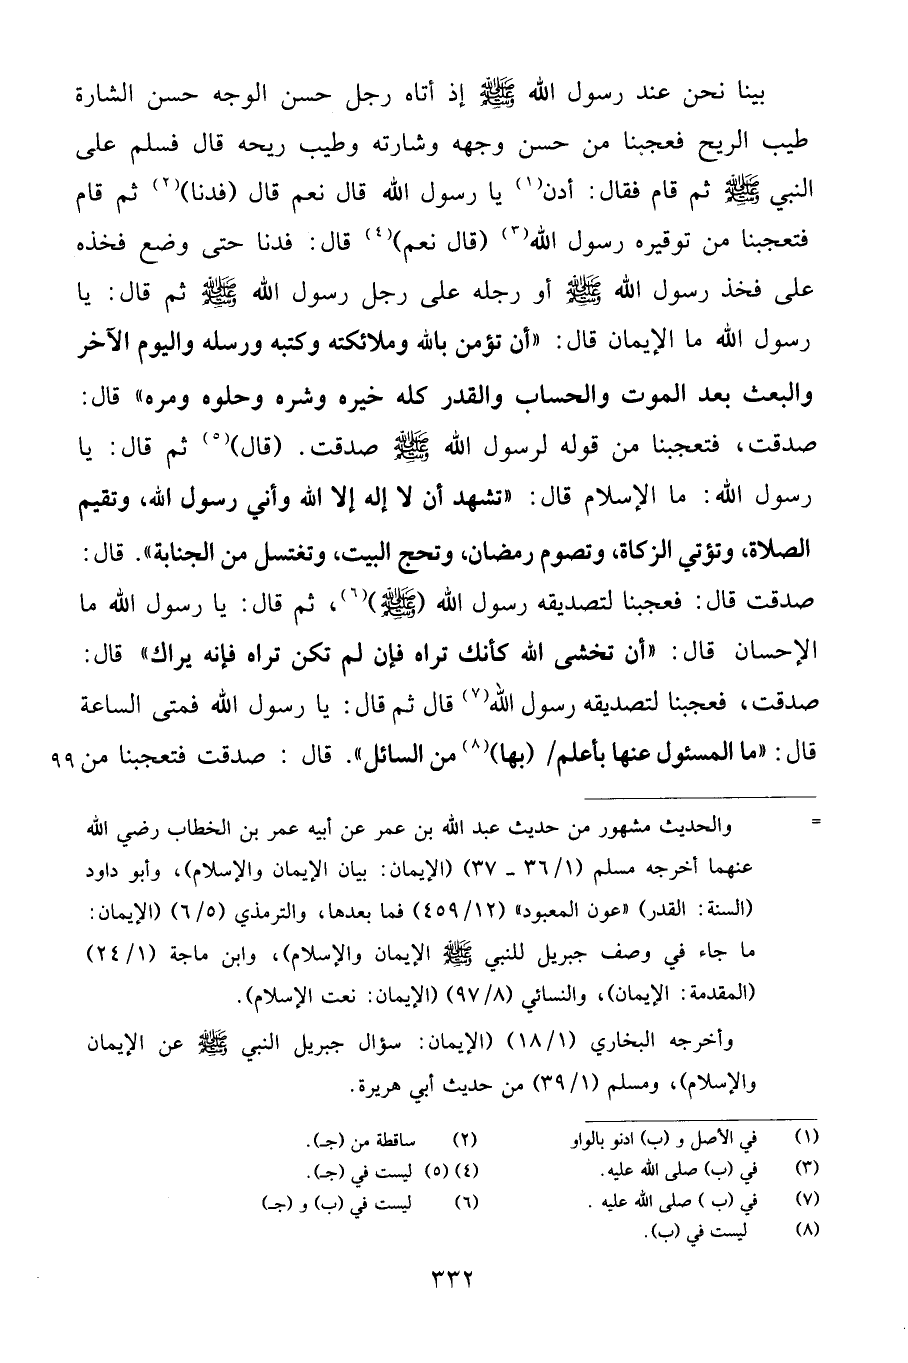 بينا نحن عند رسول الله ﷺ إذ أتاه رجل حسن الوجه حسن الشارة
طيب الريح فعجبنا من حسن وجهه وشارته وطيب ريحه قال فسلم على
النبي ﷺ ثم قام فقال: أدن(١) يا رسول الله قال نعم قال (فدنا)(٢) ثم قام
فتعجبنا من توقيره رسول الله(٣) (قال نعم)(٤) قال: فدنا حتى وضع فخذه
على فخذ رسول الله ﷺ أو رجله على رجل رسول الله ﷺ ثم قال: يا
رسول الله ما الإيمان قال: «أن تؤمن بالله وملائكته وكتبه ورسله واليوم الآخر
والبعث بعد الموت والحساب والقدر كله خيره وشره وحلوه ومره» قال:
صدقت، فتعجبنا من قوله لرسول الله ﷺ صدقت. (قال)(٥) ثم قال: يا
رسول الله: ما الإسلام قال: «تشهد أن لا إله إلا الله وأني رسول الله، وتقيم
الصلاة، وتؤتي الزكاة، وتصوم رمضان، وتحج البيت، وتغتسل من الجنابة». قال:
صدقت قال: فعجبنا لتصديقه رسول الله (ﷺ)(٦)، ثم قال: يا رسول الله ما
الإحسان قال: «أن تخشى الله كأنك تراه فإن لم تكن تراه فإنه يراك» قال:
صدقت، فعجبنا لتصديقه رسول الله(٧) قال ثم قال: يا رسول الله فمتى الساعة
قال: «ما المسئول عنها بأعلم/ (بها)(٨) من السائل». قال : صدقت فتعجبنا من ٩٩
= والحديث مشهور من حديث عبد الله بن عمر عن أبيه عمر بن الخطاب رضي الله
عنهما أخرجه مسلم (١/ ٣٦ ـ ٣٧) (الإيمان: بيان الإيمان والإسلام)، وأبو داود
(السنة: القدر) «عون المعبود» (١٢/ ٤٥٩) فما بعدها، والترمذي (٥/ ٦) (الإيمان:
ما جاء في وصف جبريل للنبي ﷺ الإيمان والإسلام)، وابن ماجة (١/ ٢٤)
(المقدمة: الإيمان)، والنسائي (٨/ ٩٧) (الإيمان: نعت الإسلام).
وأخرجه البخاري (١/ ١٨) (الإيمان: سؤال جبريل النبي ﷺ عن الإيمان
والإسلام)، ومسلم (١/ ٣٩) من حديث أبي هريرة.
(١) في الأصل و (ب) ادنو بالواو (٢) ساقطة من (جـ).
(٣) في (ب) صلى الله عليه. (٤) (٥) ليست في (جـ).
(٧) في (ب ) صلى الله عليه . (٦) ليست في (ب) و (جـ)
(٨) ليست في (ب).
٣٣٢